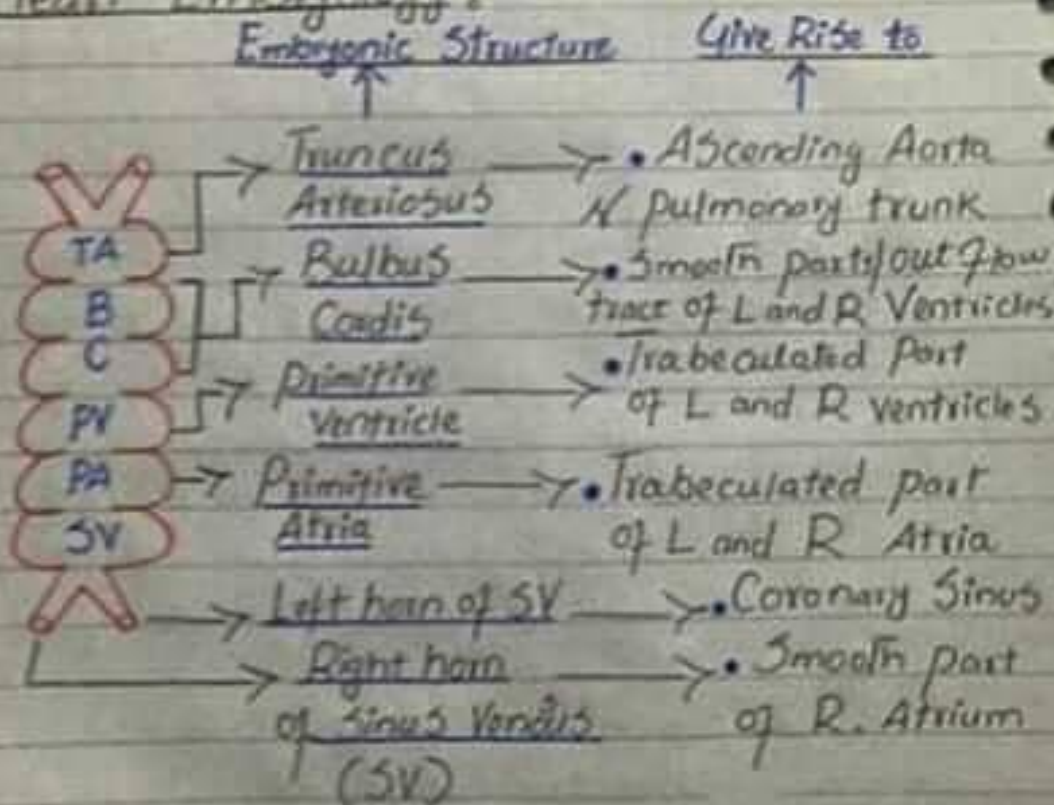 Embryology:
Embryonic Structure Give Rise to
TA
B
C
PV
PA
SV
Truncus
Arteriosus
• Ascending Aorta
N pulmonary trunk
Bulbus
Cordis
• Smooth parts/out flow
tract of L and R Ventricles
Primitive
Ventricle
• Trabeculated Part
of L and R ventricles
Primitive
Atria
• Trabeculated part
of L and R Atria
Left horn of SV
• Coronary Sinus
Right horn
of Sinus Venosus
(SV)
• Smooth part
of R. Atrium